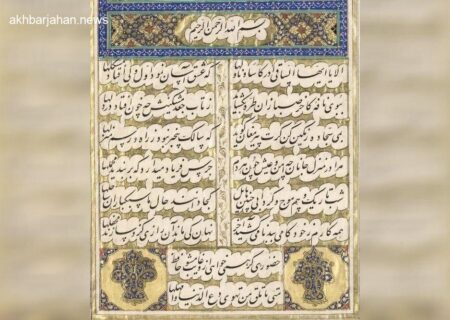 akhbarjahan.news
بسم الله الرحمن الرحیم
الا یا ایها الساقی ادر کاسا و ناولها که عشق آسان نمود اول ولی افتاد مشکلها
ببوی نافه کاخر صبا زان طره بگشاید ز تاب جعد مشکینش چه خون افتاد در دلها
بمی سجاده رنگین کن گرت پیر مغان گوید که سالک بیخبر نبود ز راه و رسم منزلها
مرا در منزل جانان چه امن و عیش چون هر دم جرس فریاد میدارد که بربندید محملها
شب تاریک و بیم موج و گردابی چنین هایل کجا دانند حال ما سبکباران ساحلها
همه کارم ز خود کامی به بدنامی کشید آخر نهان کی ماند آن رازی کزو سازند محفلها
حضوری گر همی خواهی ازو غایب مشو حافظ
متی ما تلق من تهوی دع الدنیا و اهملها